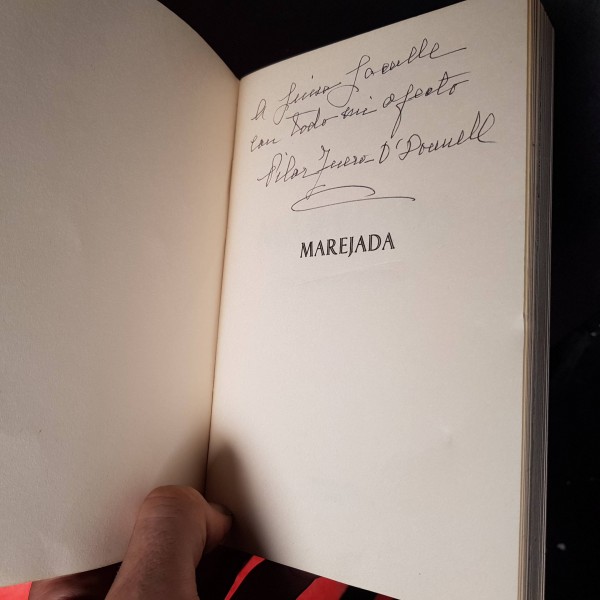 A Luisa Lacalle
con todo mi afecto
Pilar D'Donnell
MAREJADA